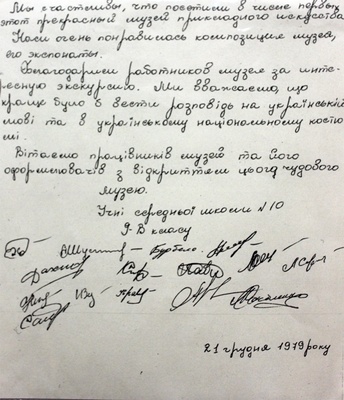 Мы счастливы, что посетили в числе первых
этот прекрасный музей прикладного искусства
Нам очень понравилась композиция музея,
его экспонаты.
Благодарим работников музея за инте-
ресную экскурсию. Ми вважаємо, що
краще було б вести розповідь на українській
мові та в українському національному костю
мі.
Вітаємо працівників музею та його
оформлювачів з відкриттям цього чудового
музею.
Учні середньої школи N 10
9 В класу
21 грудня 1979 року